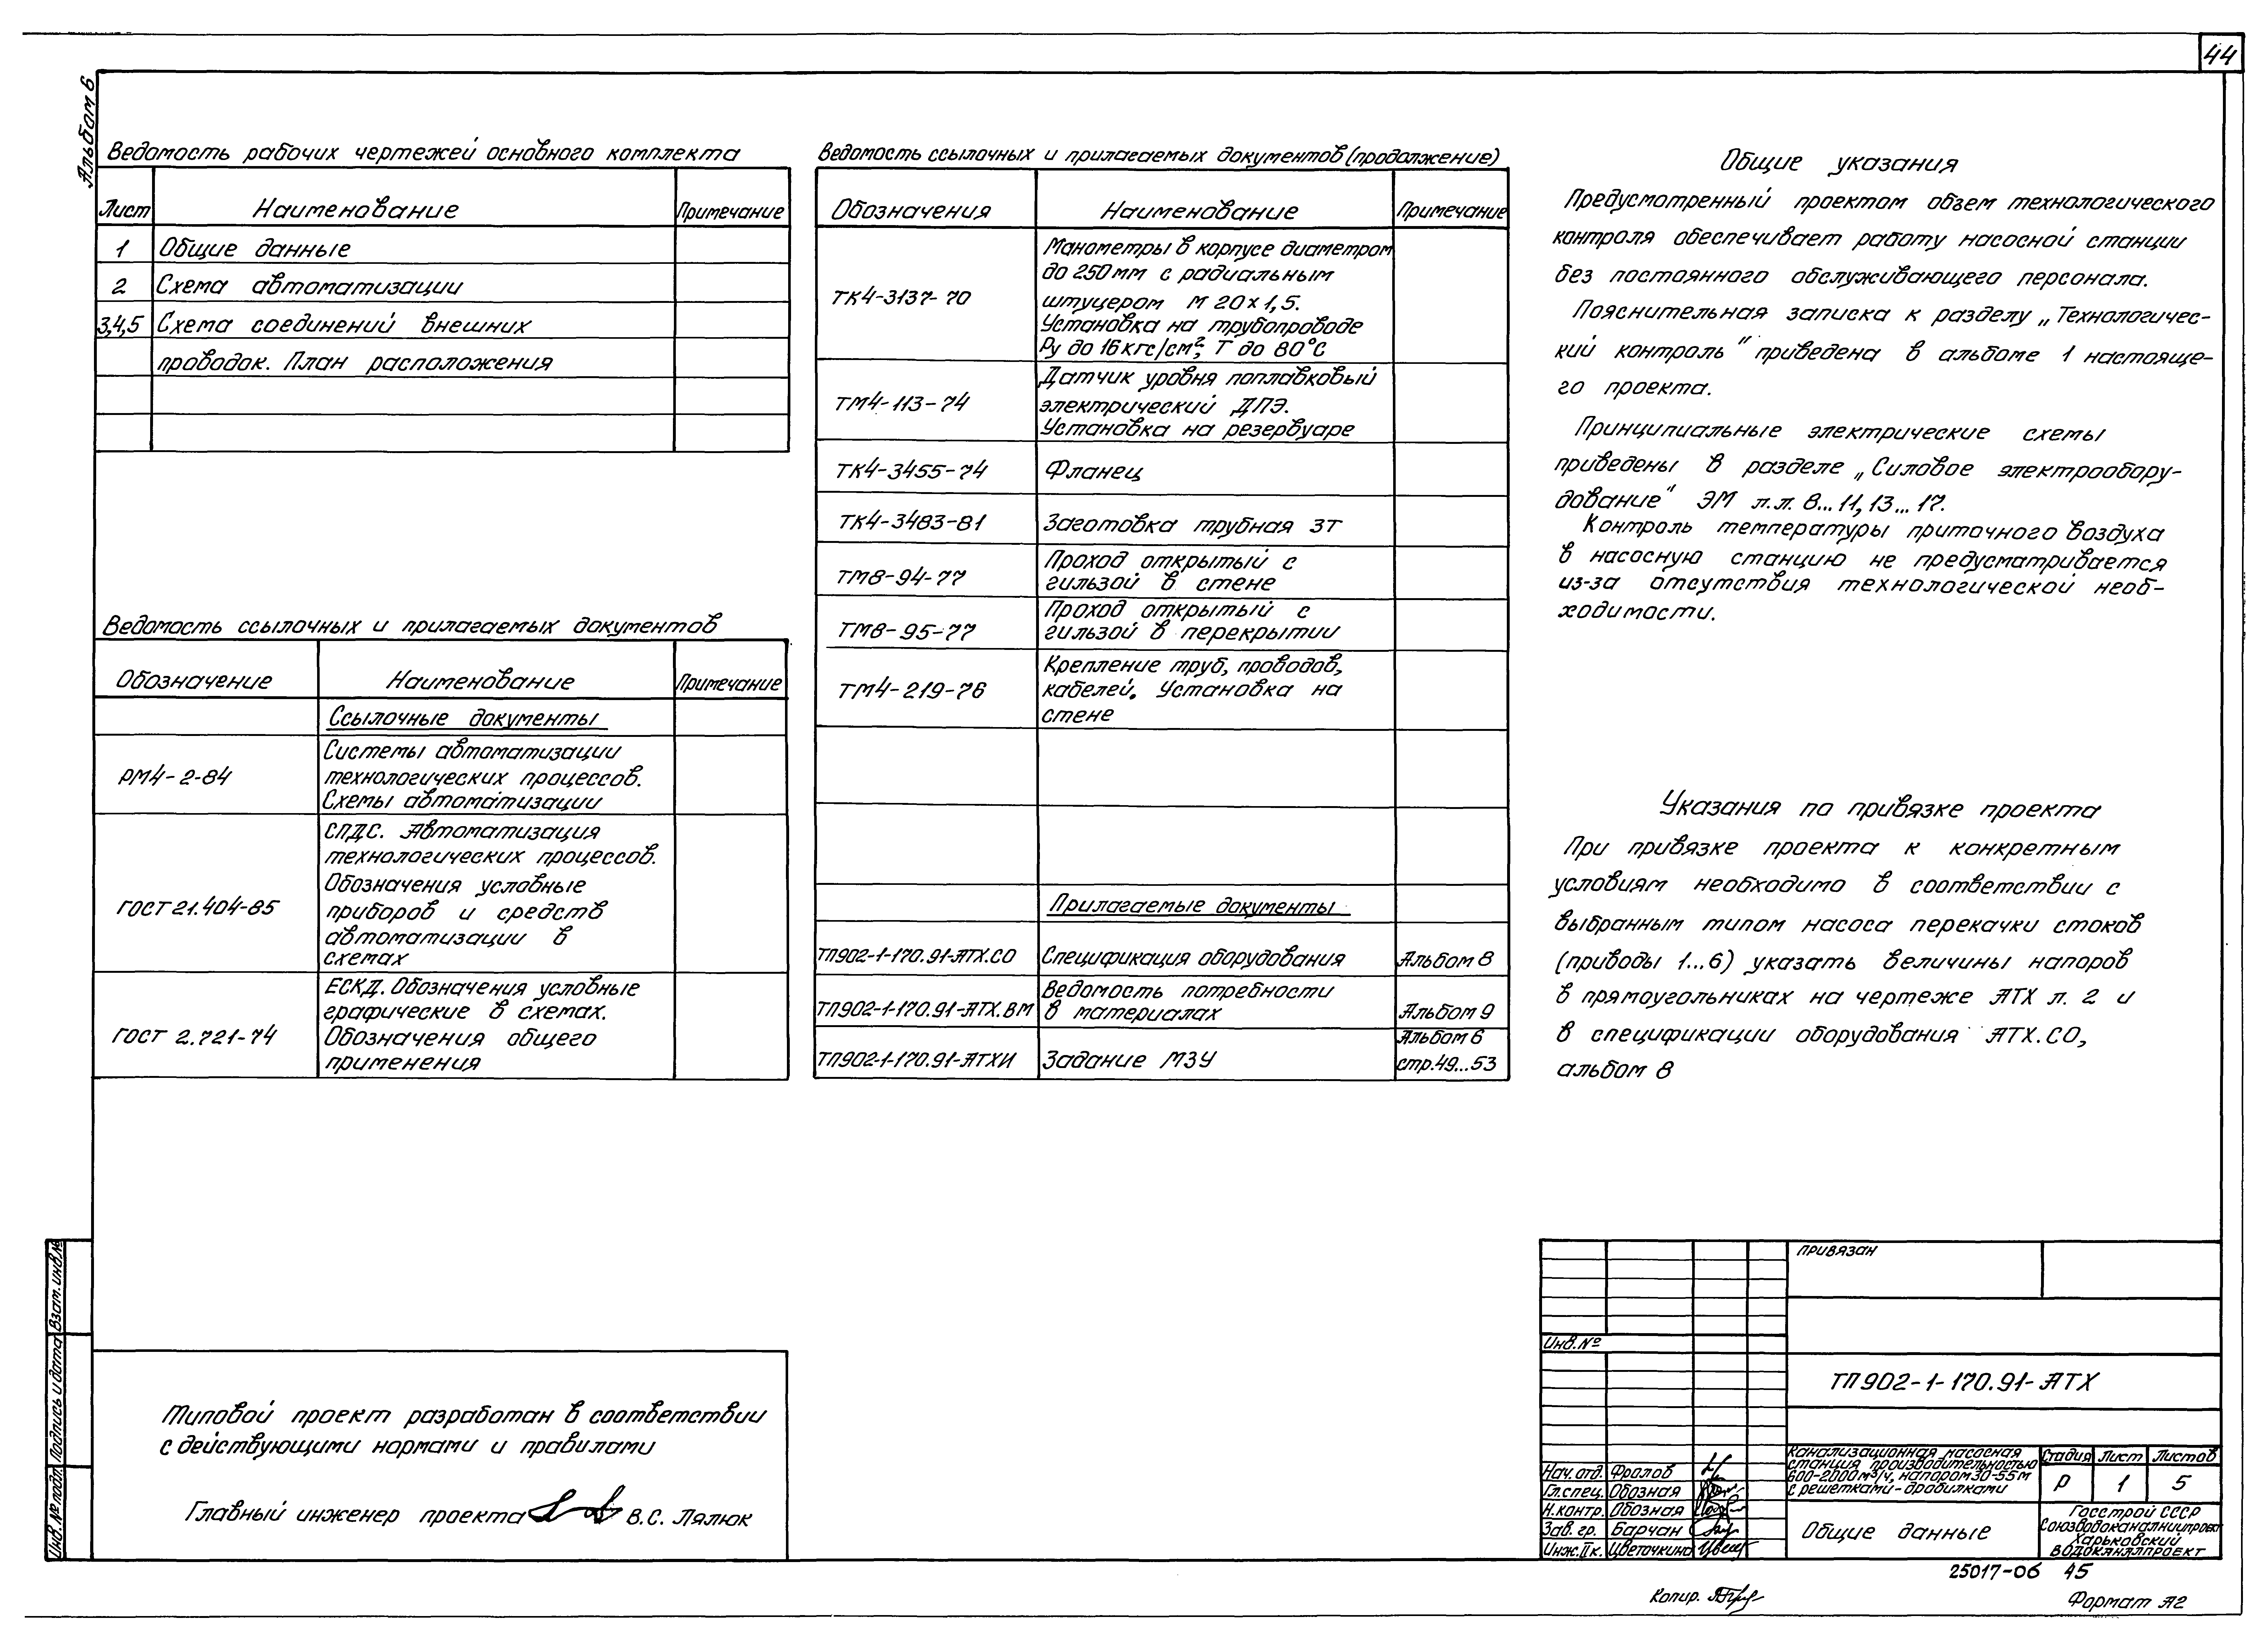 44
Альбом 6
Ведомость рабочих чертежей основного комплекта
Лист Наименование Примечание
1 Общие данные
2 Схема автоматизации
3,4,5 Схема соединений внешних
проводок. План расположения
Ведомость ссылочных и прилагаемых документов
Обозначение Наименование Примечание
Ссылочные документы
РМ4-2-84
Системы автоматизации
технологических процессов.
Схемы автоматизации
ГОСТ 21.404-85
СПДС. Автоматизация
технологических процессов.
Обозначения условные
приборов и средств
автоматизации в
схемах
ГОСТ 2.721-74
ЕСКД. Обозначения условные
графические в схемах.
Обозначения общего
применения
Ведомость ссылочных и прилагаемых документов (продолжение)
Обозначения Наименование Примечание
ТК4-3137-70
Манометры в корпусе диаметром
до 250 мм с радиальным
штуцером М 20×1,5.
Установка на трубопроводе
Ру до 16 кгс/см², Т до 80°С
ТМ4-113-74
Датчик уровня поплавковый
электрический ДПЭ.
Установка на резервуаре
ТК4-3455-74 Фланец
ТК4-3483-81 Заготовка трубная ЗТ
ТМ8-94-77
Проход открытый с
гильзой в стене
ТМ8-95-77
Проход открытый с
гильзой в перекрытии
ТМ4-219-76
Крепление труб, проводов,
кабелей. Установка на
стене
Прилагаемые документы
ТП902-1-170.91-АТХ.СО Спецификация оборудования Альбом 8
ТП902-1-170.91-АТХ.ВМ
Ведомость потребности
в материалах
Альбом 9
ТП902-1-170.91-АТХИ Задание МЗУ
Альбом 6
стр.49...53
Общие указания
Предусмотренный проектом объем технологического
контроля обеспечивает работу насосной станции
без постоянного обслуживающего персонала.
Пояснительная записка к разделу „Технологичес-
кий контроль" приведена в альбоме 1 настояще-
го проекта.
Принципиальные электрические схемы
приведены в разделе „Силовое электрообору-
дование" ЭМ л.л. 8...11, 13...17.
Контроль температуры приточного воздуха
в насосную станцию не предусматривается
из-за отсутствия технологической необ-
ходимости.
Указания по привязке проекта
При привязке проекта к конкретным
условиям необходимо в соответствии с
выбранным типом насоса перекачки стоков
(приводы 1...6) указать величины напоров
в прямоугольниках на чертеже АТХ л. 2 и
в спецификации оборудования АТХ.СО,
альбом 8
Типовой проект разработан в соответствии
с действующими нормами и правилами
Главный инженер проекта В.С. Пялюк
Инв. № подл. Подпись и дата Взам. инв. №
привязан
Инв. №
ТП902-1-170.91-АТХ
Нач. отд. Фролов
Гл.спец. Обозная
Н.контр. Обозная
Зав. гр. Барчан
Инж. II к. Цветочкина
Канализационная насосная
станция производительностью
600-2000 м³/ч, напором 30-55 м
с решетками-дробилками
Стадия Лист Листов
Р 1 5
Общие данные
Госстрой СССР
Союзводоканалниипроект
Харьковский
Водоканалпроект
25017-06 45
Копир.
Формат А2